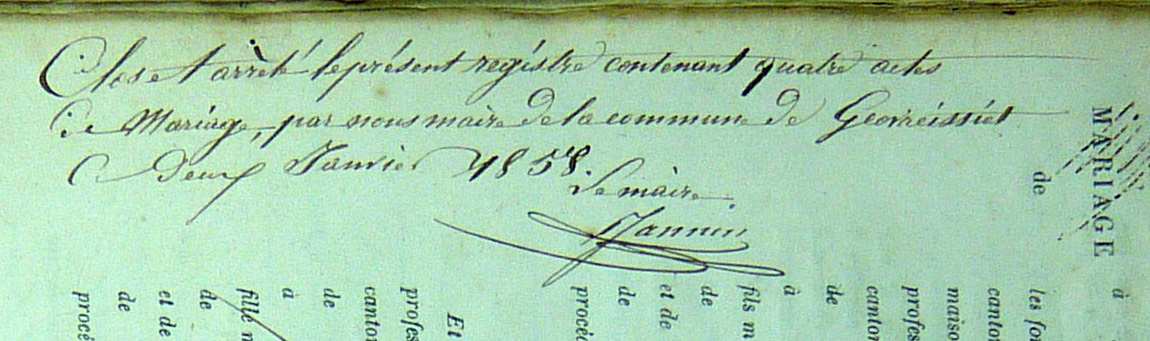 Clos et arrêté le présent registre contenant quatre actes
de Mariage, par nous maire de la commune de Géovreissiat
Ce deux Janvier 1858.
Le maire
Jannin
MARIAGE
de
à
les fo
canto
maiso
profes
canton
de
à
fils m
de
et de
de
procéd
Et
profes
canton
de
à
fille m
de
et de
de
procé